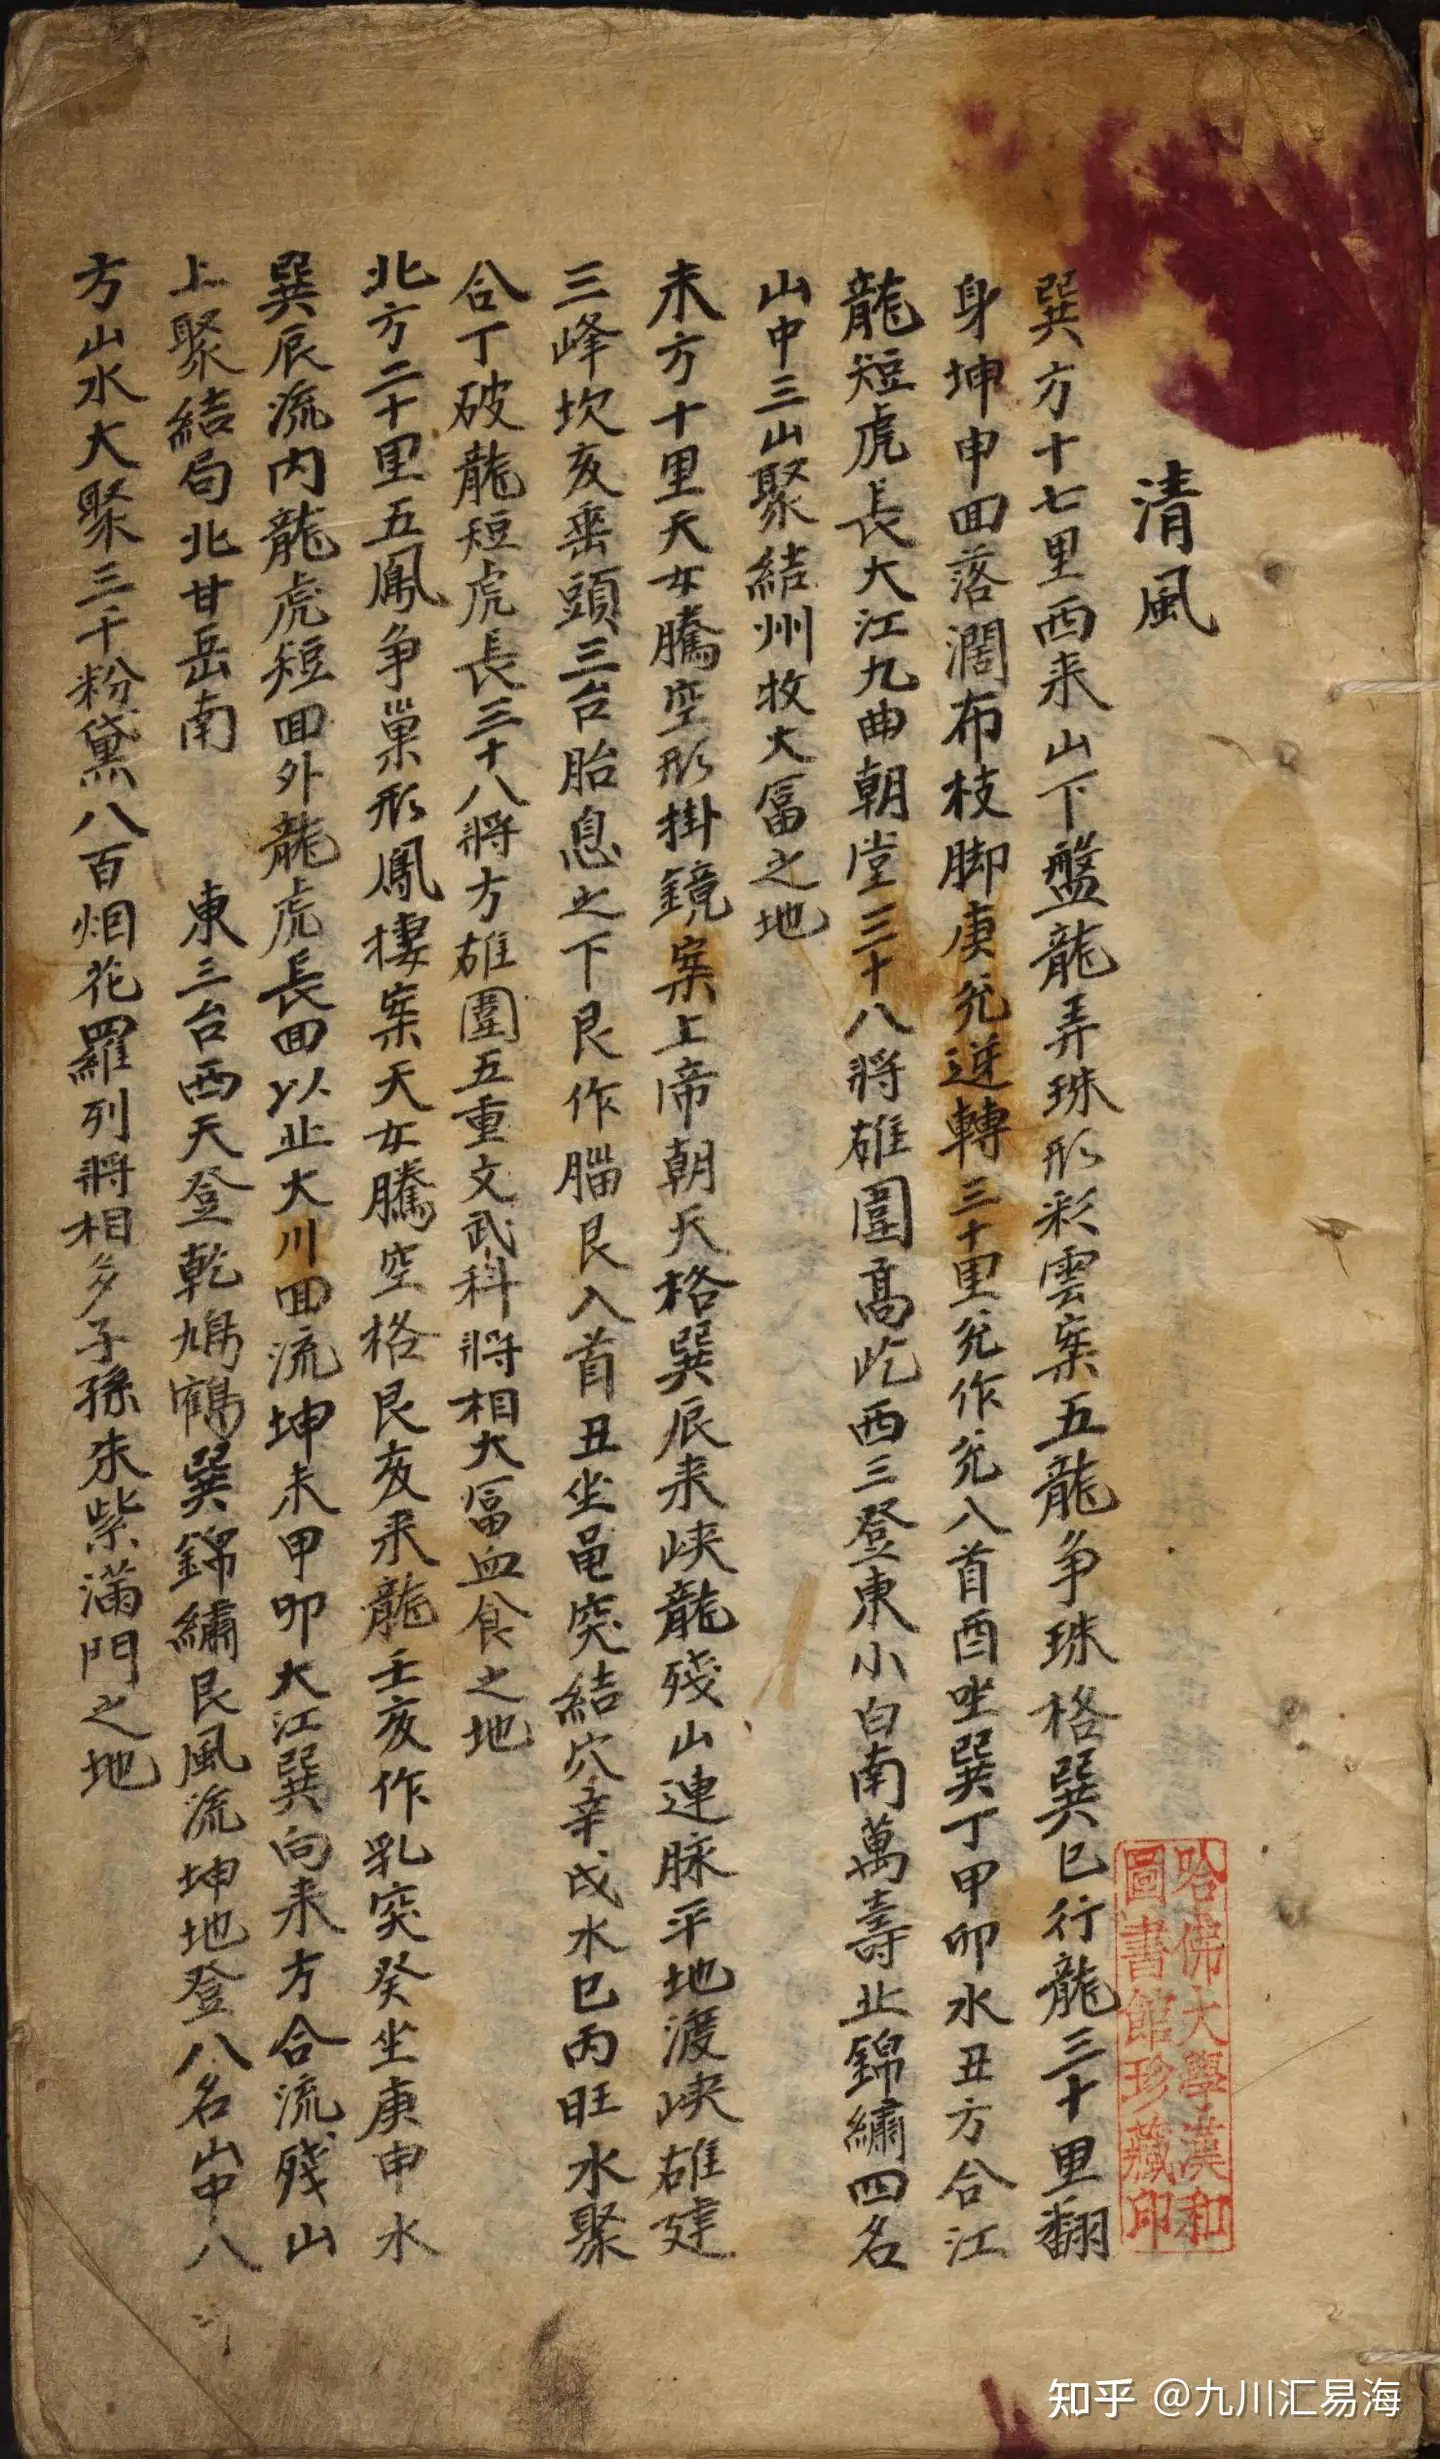 清風
巽方十七里西来山下盤龍弄珠形彩雲案五龍争珠格巽巳行龍三十里翻
身坤申回落濶布枝脚庚兊逆轉三十里兊作兊入首酉坐巽丁甲卯水丑方合江
龍短虎長大江九曲朝堂三十八將雄圍高屹西三登東小白南萬壽北錦繡四名
山中三山聚結州牧大富之地
未方十里天女騰空形掛鏡案上帝朝天格巽辰来峽龍殘山連脉平地渡峽雄建
三峰坎亥垂頭三台胎息之下艮作腦艮入首丑坐黾突結穴辛戌水巳丙旺水聚
合丁破龍短虎長三十八將方雄圍五重文武科將相大富血食之地
北方二十里五鳳争巢形鳳棲案天女騰空格艮亥来龍壬亥作乳突癸坐庚申水
巽辰流内龍虎短回外龍虎長回以止大川回流坤未甲卯大江巽向来方合流殘山
上聚結局北甘岳南 東三台西天登乾鳩鶴巽錦繡艮風流坤地登八名山中八
方山水大聚三千粉黛八百烟花羅列將相多子孫朱紫滿門之地
哈佛大學漢和
圖書館珍藏印
知乎 @九川汇易海